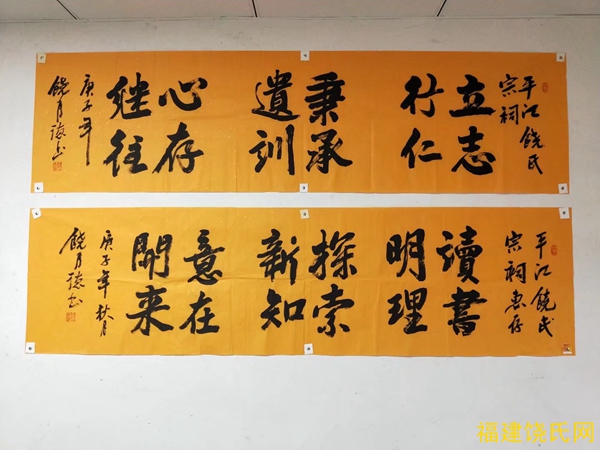 平江饶氏
宗祠
立志
行仁
秉承
遺訓
心存
继往
庚子年
饶月德书
平江饶氏
宗祠惠存
讀書
明理
探索
新知
意在
開来
庚子年秋月
饶月德书
福建饶氏网